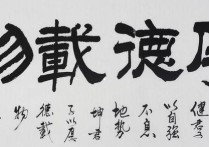 厚德載物
健君
以自強
不息
地勢
坤君
子以厚
德載
物